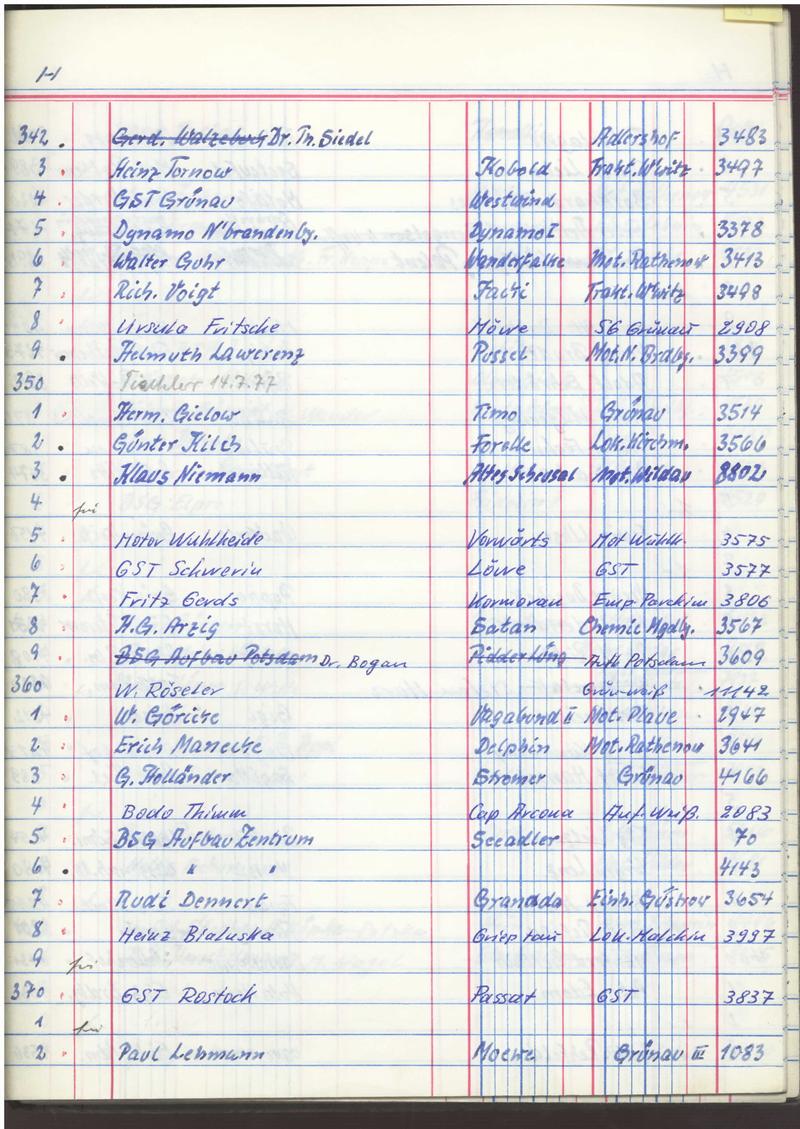 H
342 . ~~Gerd. Walzebuch~~ Dr. Th. Siedel Adlershof 3483
3 . Heinz Tornow Kobold Trakt. W'witz 3497
4 . GST Grünau Westwind
5 . Dynamo N'brandenbg. Dynamo I 3378
6 . Walter Guhr Wanderfalke Mot. Rathenow 3413
7 . Rich. Voigt Trakt. W'witz 3498
8 . Ursula Fritsche Möwe SG Grünau 2908
9 . Helmuth Lawerenz Pussel Mot. N. Brdbg. 3399
350 Tischler 14.7.77
1 . Herm. Gielow Timo Grünau 3514
2 . Günter Kilch Forelle Lok. Kirchm. 3566
3 . Klaus Niemann Altes Scheusal Mot. Wildau 8802
4 frei
5 . Motor Wuhlheide Vorwärts Mot Wuhlh. 3575
6 . GST Schwerin Löwe GST 3577
7 . Fritz Gerds Kormoran Emp. Parchim 3806
8 . H.G. Arzig Satan Chemie Mgdbg. 3567
9 . ~~BSG Aufbau Potsdam~~ Dr. Bogan ~~Pidder Lüng~~ Aufb Potsdam 3609
360 W. Röseler Grün-weiß 11142
1 . W. Göricke Vagabund II Mot. Plaue 2947
2 . Erich Manecke Delphin Mot. Rathenow 3641
3 . G. Holländer Stromer Grünau 4166
4 . Bodo Thimm Cap Arcona 2083
5 . BSG Aufbau Zentrum Seeadler 70
6 . " " 4143
7 . Rudi Dennert Einh. Güstrow 3654
8 . Heinz Bialuska Lok. Malchin 3997
9 frei
370 . GST Rostock Passat GST 3837
1 frei
2 . Paul Lehmann Moewe Grünau III 1083